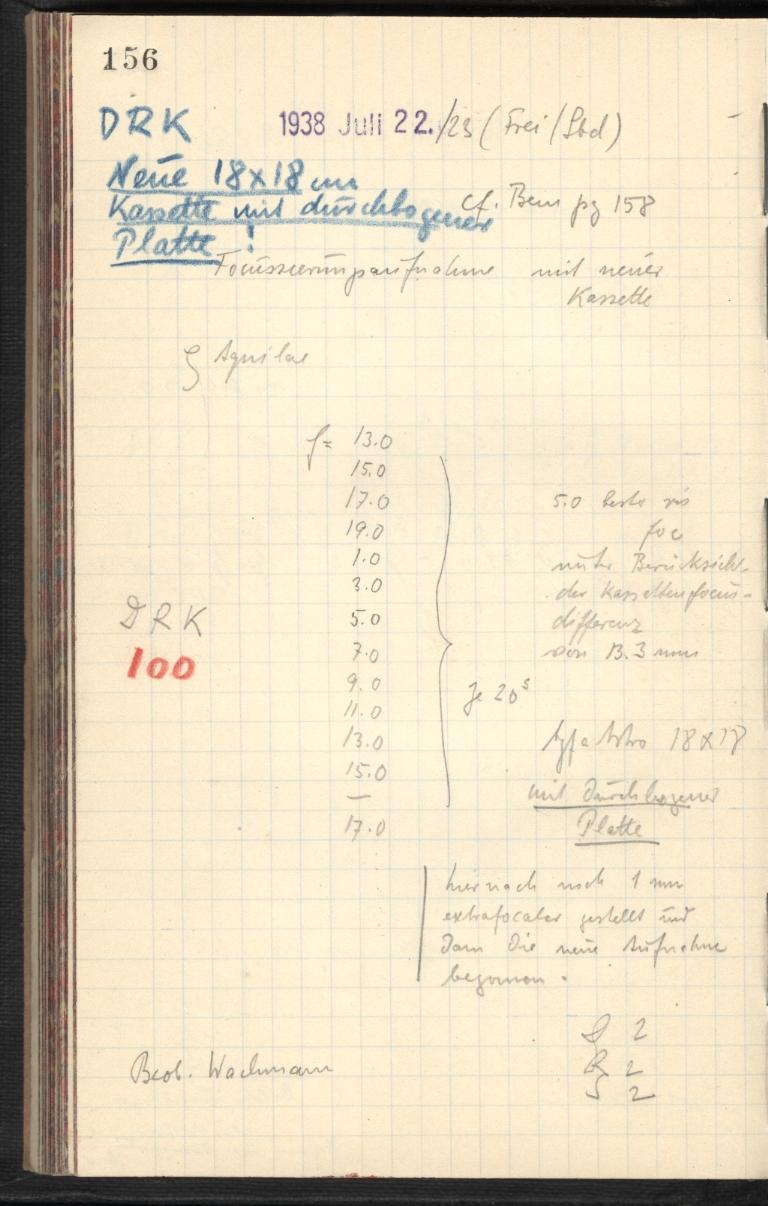 156
DRK 1938 Juli 22./23 (Frei/Sbd)
Neue 18x18 cm
Kassette mit durchbogener
Platte!
cf. Bem pg 158
Focussierungsaufnahme mit neuer
Kassette
ζ Aquilae
f = 13.0
15.0
17.0
19.0
1.0
3.0
5.0
7.0
9.0
11.0
13.0
15.0
—
17.0
DRK
100
Je 20s
5.0 beste vis
foc
unter Berücksicht.
der Kassettenfocus-
differenz
von 13.3 mm
Agfa Astro 18x18
mit durchbogener
Platte
hiernach noch 1 mm
extrafocaler gestellt und
dann die neue Aufnahme
begonnen.
2
R 2
S 2
Beob. Wachmann